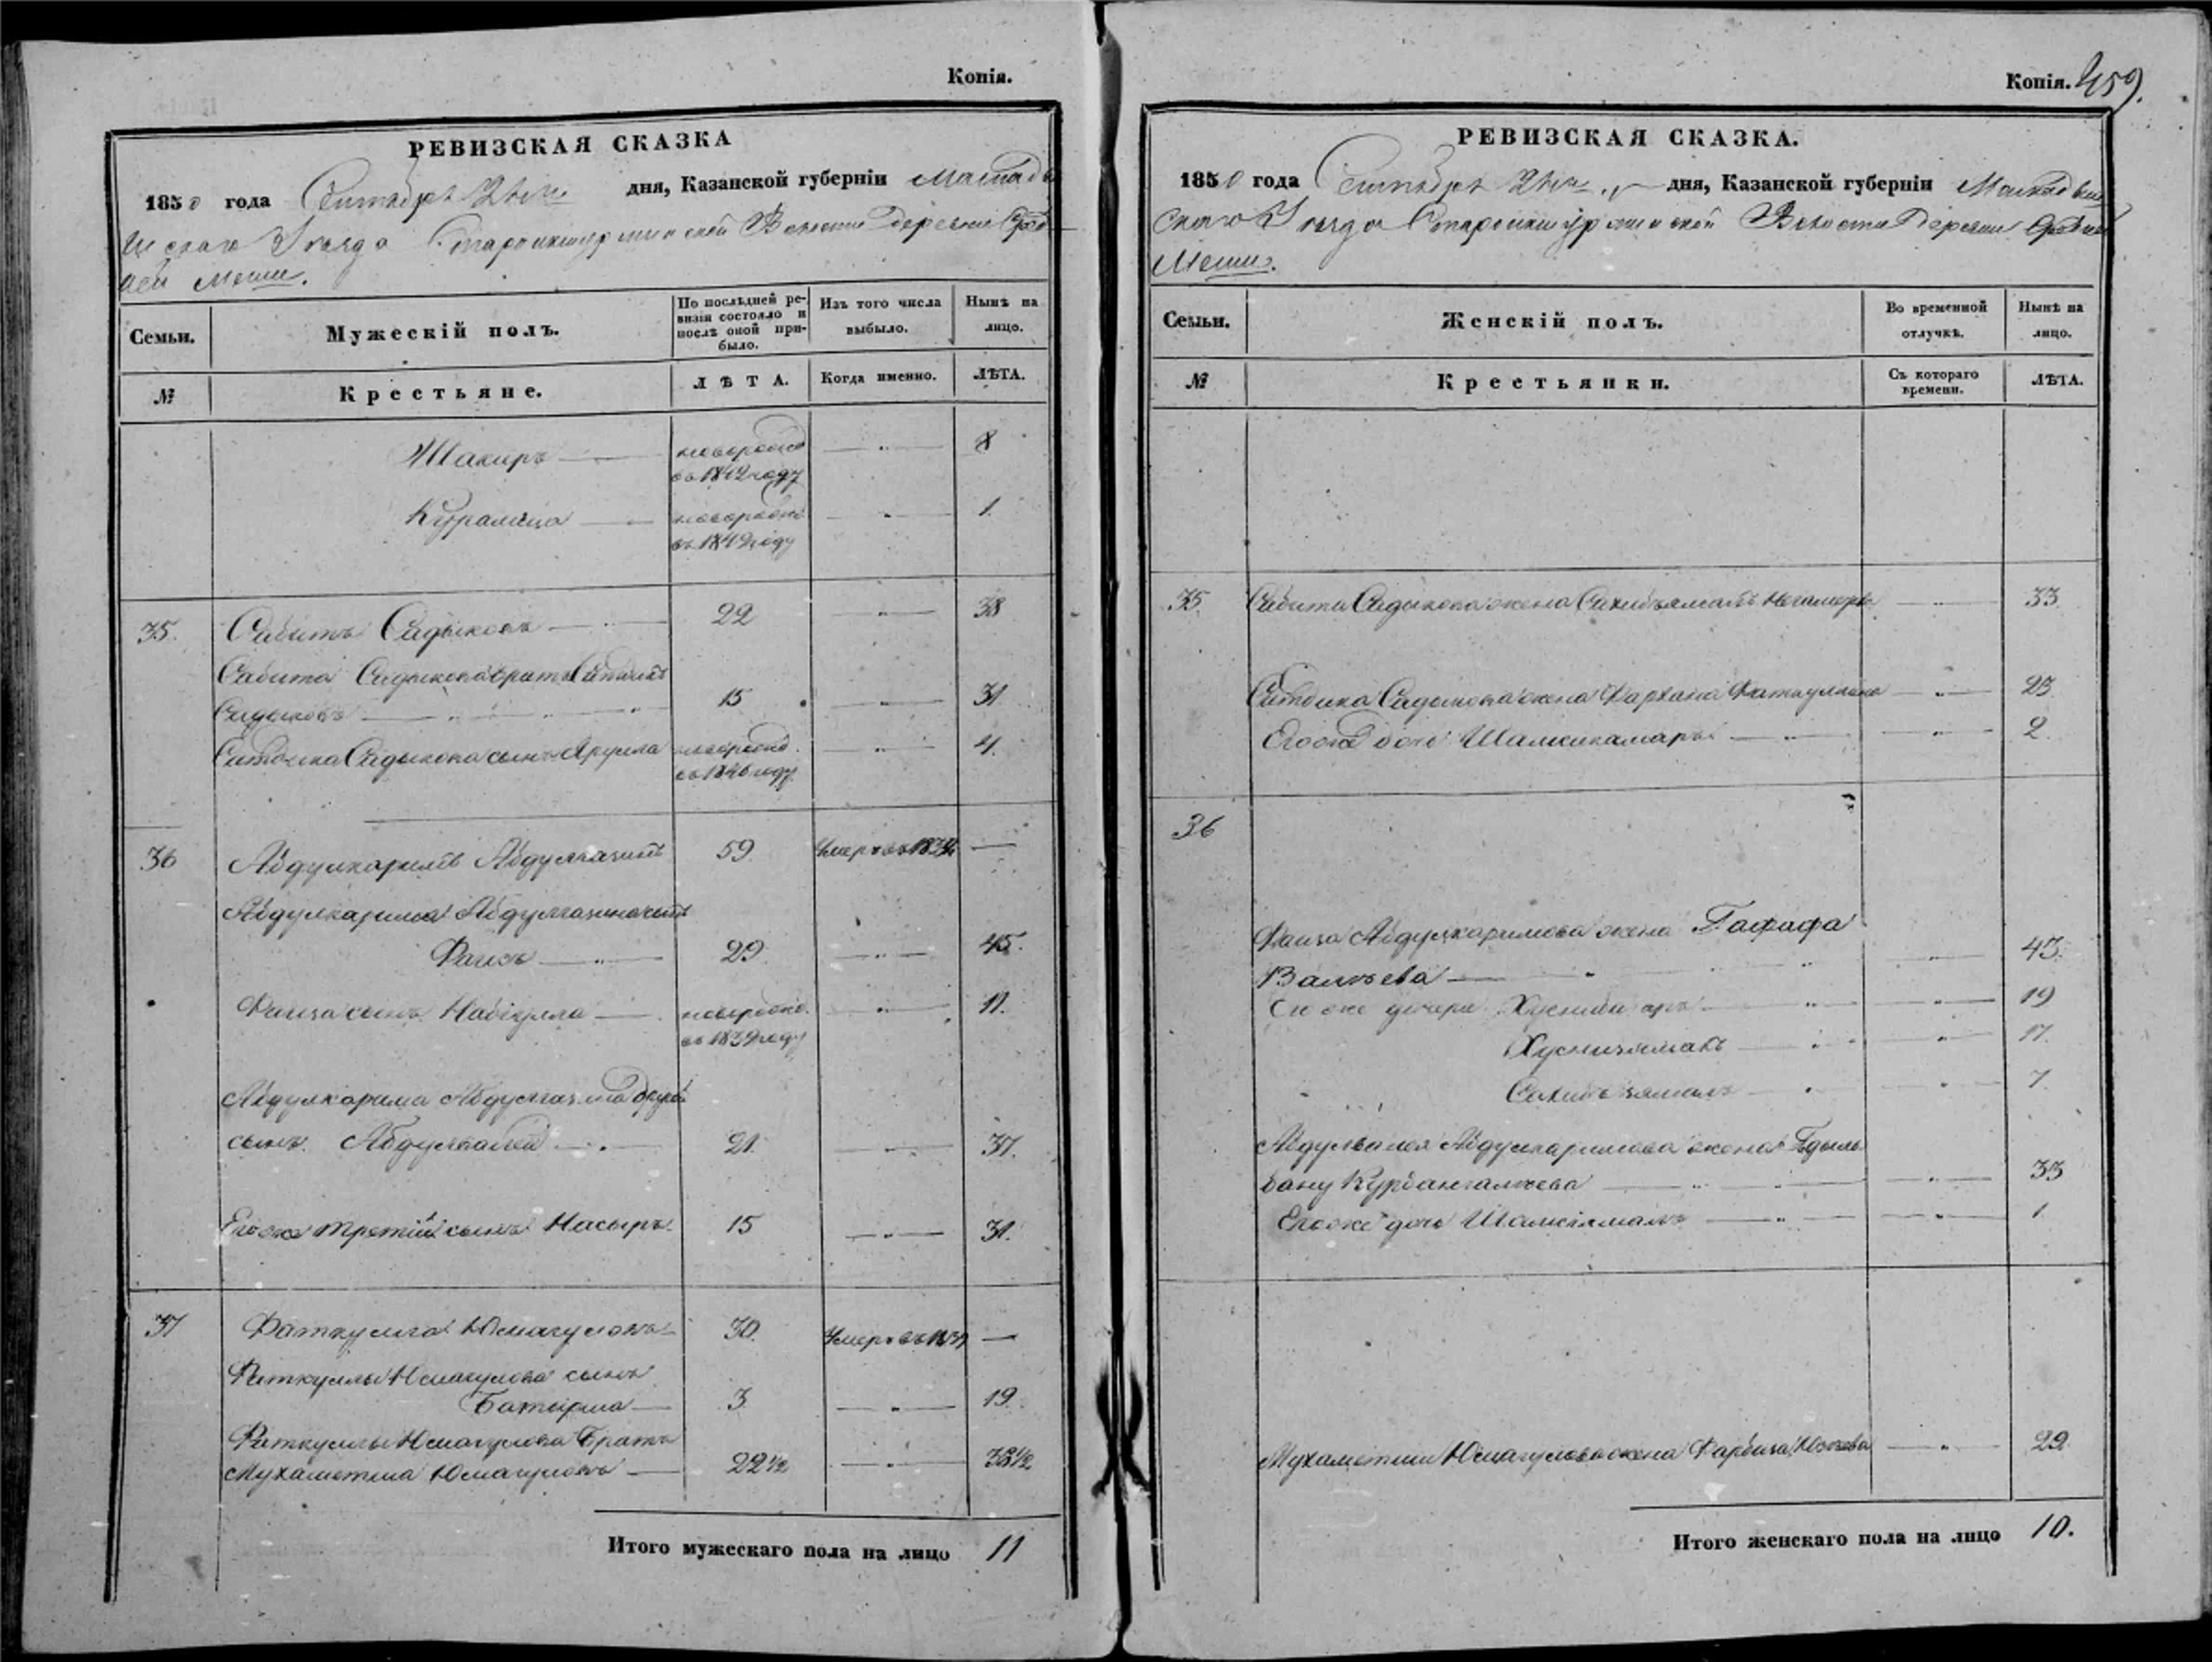 Копія.
РЕВИЗСКАЯ СКАЗКА
1850 года Сентября дня, Казанской губерніи Мамады
шскаго Уѣзда Староикшурминской Волости Деревни Сред
ней Меши.
Семьи.
Мужескій полъ.
По послѣдней ре-
визіи состояло и
послѣ оной при-
было.
Изъ того числа
выбыло.
Нынѣ на
лицо.
№
Крестьяне.
ЛѢТА.
Когда именно.
ЛѢТА.
Шакиръ — новорожд — " — 8
въ 1842 году
— новорожд — " — 1.
въ 1849 году
35. Сабитъ Садыковъ — 22 — " — 38
Сабита Садыкова братъ Ситдикъ
Садыковъ — 15 — " — 31
Ситдика Садыкова сынъ новорожд. — " — 4.
въ 1846 году
36 Абдулкаримъ Абдулгазинъ 59 Умеръ въ 1834 —
Абдулкарима Абдулгазина сынъ
Фаизъ — " — 29 — " — 45.
Фаиза сынъ Набіулла — новорожд. — " — 11.
въ 1839 году
Абдулкарима Абдулгазина другой
сынъ Абдулвалей — " — 21. — " — 37.
Его же третій сынъ Насыръ 15 — " — 31.
37 Фаткулла Юмагуловъ 30. Умеръ въ —
Фаткуллы Юмагулова сынъ
Батырша — 3 — " — 19.
Фаткуллы Юмагулова братъ
Мухаметша Юмагуловъ — 22½ — " — 38½
Итого мужескаго пола на лицо 11
Копія. 459.
РЕВИЗСКАЯ СКАЗКА.
1850 года Сентября дня, Казанской губерніи Мамадыш
скаго Уѣзда Староикшурминской Волости Деревни Средней
Меши.
Семьи.
Женскій полъ.
Во временной
отлучкѣ.
Нынѣ на
лицо.
№
Крестьянки.
Съ котораго
времени.
ЛѢТА.
35. Сабита Садыкова жена — " — 33.
Ситдика Садыкова жена Фархана Фаткуллина — " — 23
Его же дочь Шамсикамаръ — " — " — 2.
36
Фаиза Абдулкаримова жена Гафифа
Валѣева — " — " — 43.
Его же дочери — " — " — 19
Хуснизямалъ — " — " — 17.
Сахибзямалъ — " — " — 7.
Абдулвалея Абдулкаримова жена Гдыль
бану Курбангалѣева — " — " — 33
Его же дочь Шамсіямалъ — " — " — 1.
Мухаметши Юмагулова жена Фарбиза — " — 29.
Итого женскаго пола на лицо 10.